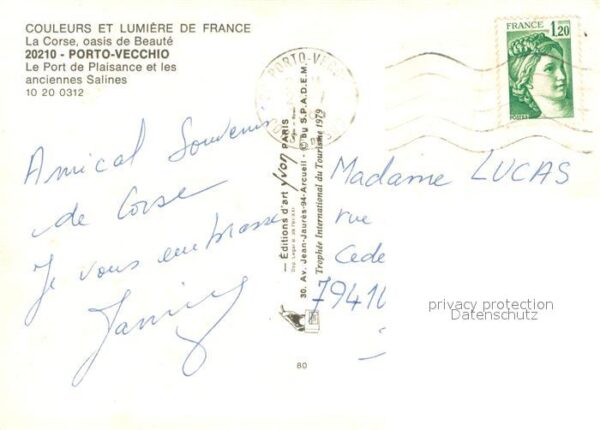 COULEURS ET LUMIÈRE DE FRANCE
La Corse, oasis de Beauté
20210 - PORTO-VECCHIO
Le Port de Plaisance et les
anciennes Salines
10 20 0312
PORTO-VECCHIO
FRANCE 1,20
POSTES
Amical Souvenir
de Corse
Je vous embrasse
— Éditions d'art yvon PARIS
30. Av. Jean-Jaurès-94-Arcueil - © By S.P.A.D.E.M.
Trophée International du Tourisme 1979
Madame LUCAS
rue
Cede
7941
privacy protection
Datenschutz
80